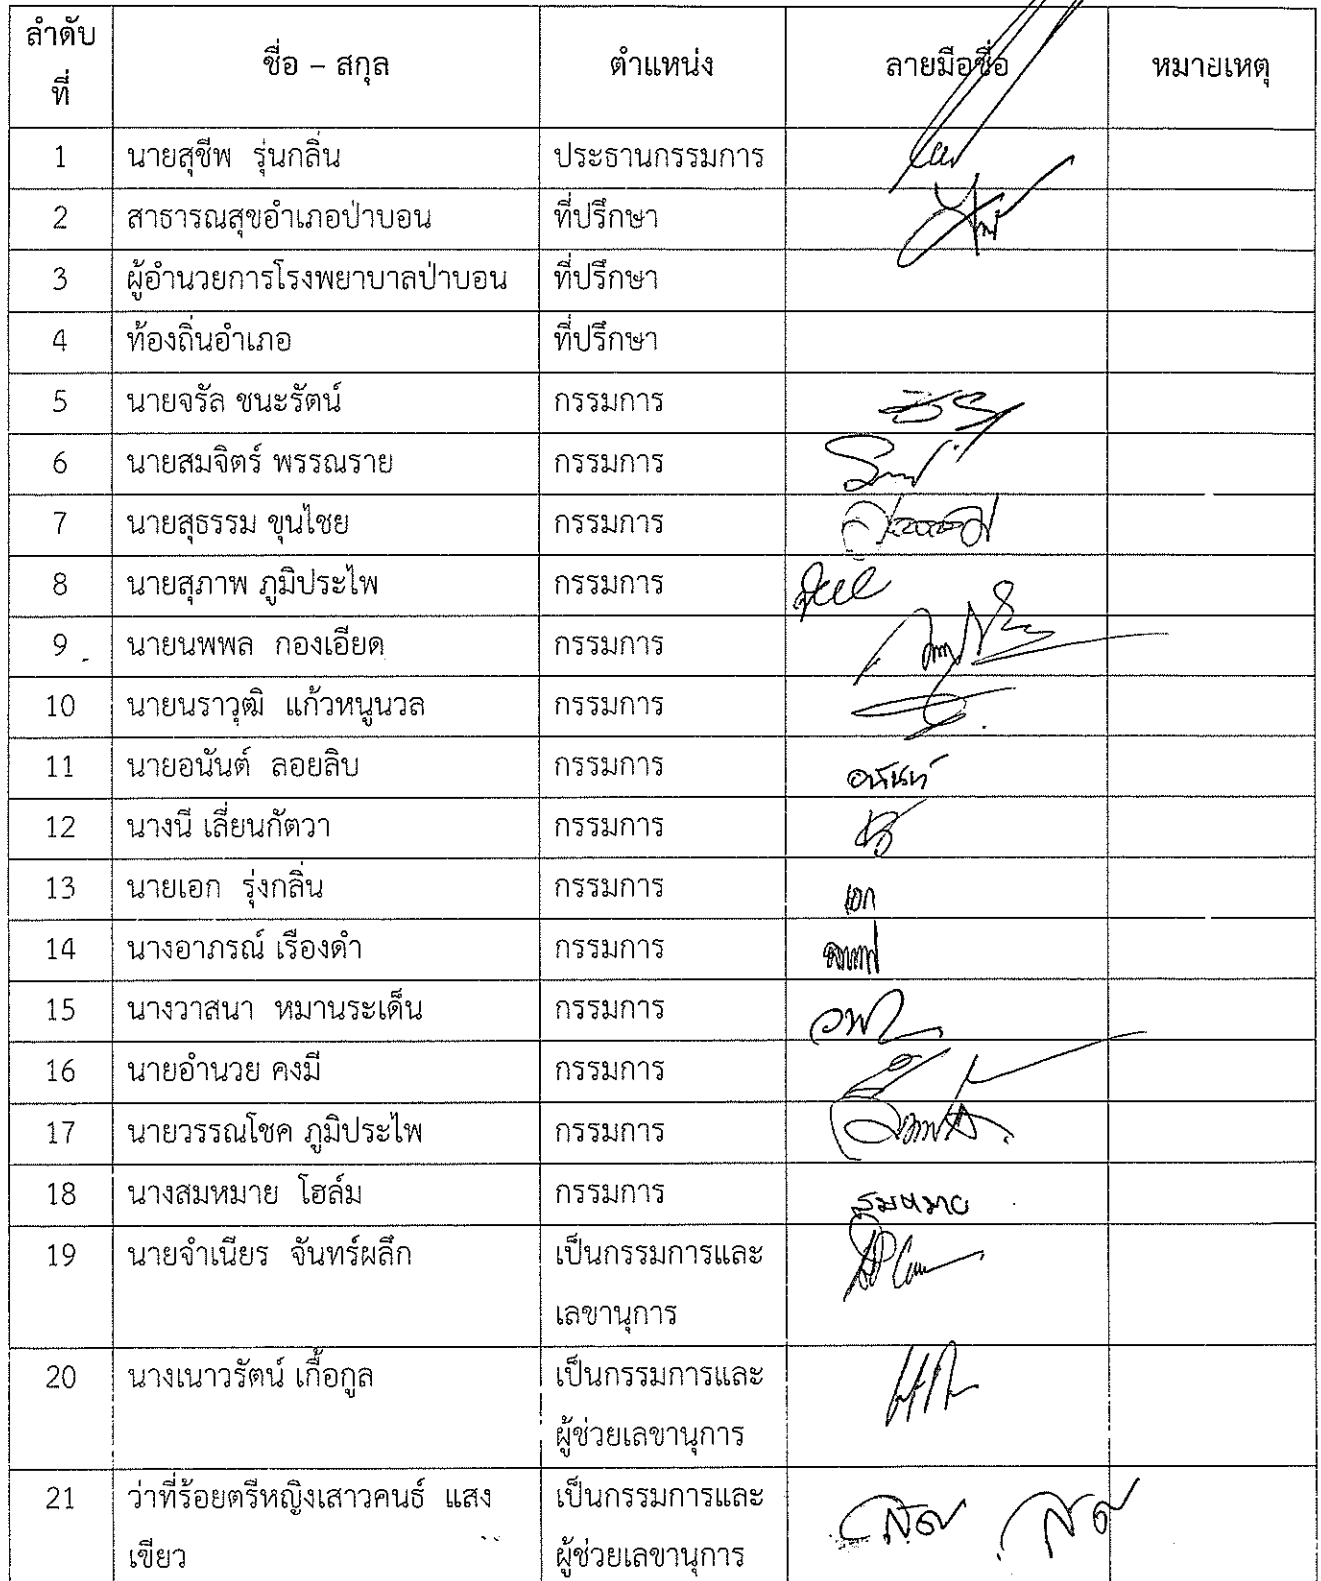 ลำดับ
ที่
ชื่อ – สกุล
ตำแหน่ง
ลายมือชื่อ
หมายเหตุ
1 นายสุชีพ รุ่นกลิ่น ประธานกรรมการ
2 สาธารณสุขอำเภอป่าบอน ที่ปรึกษา
3 ผู้อำนวยการโรงพยาบาลป่าบอน ที่ปรึกษา
4 ท้องถิ่นอำเภอ ที่ปรึกษา
5 นายจรัล ชนะรัตน์ กรรมการ
6 นายสมจิตร์ พรรณราย กรรมการ
7 นายสุธรรม ขุนไชย กรรมการ
8 นายสุภาพ ภูมิประไพ กรรมการ
9 นายนพพล กองเอียด กรรมการ
10 นายนราวุฒิ แก้วหนูนวล กรรมการ
11 นายอนันต์ ลอยลิบ กรรมการ อนันท์
12 นางนี เลี่ยนกัตวา กรรมการ
13 นายเอก รุ่งกลิ่น กรรมการ เอก
14 นางอาภรณ์ เรืองดำ กรรมการ
15 นางวาสนา หมานระเด็น กรรมการ
16 นายอำนวย คงมี กรรมการ
17 นายวรรณโชค ภูมิประไพ กรรมการ
18 นางสมหมาย โฮล์ม กรรมการ สมหมาย
19 นายจำเนียร จันทร์ผลึก เป็นกรรมการและ
เลขานุการ
20 นางเนาวรัตน์ เกื้อกูล เป็นกรรมการและ
ผู้ช่วยเลขานุการ
21 ว่าที่ร้อยตรีหญิงเสาวคนธ์ แสง เป็นกรรมการและ
เขียว ผู้ช่วยเลขานุการ